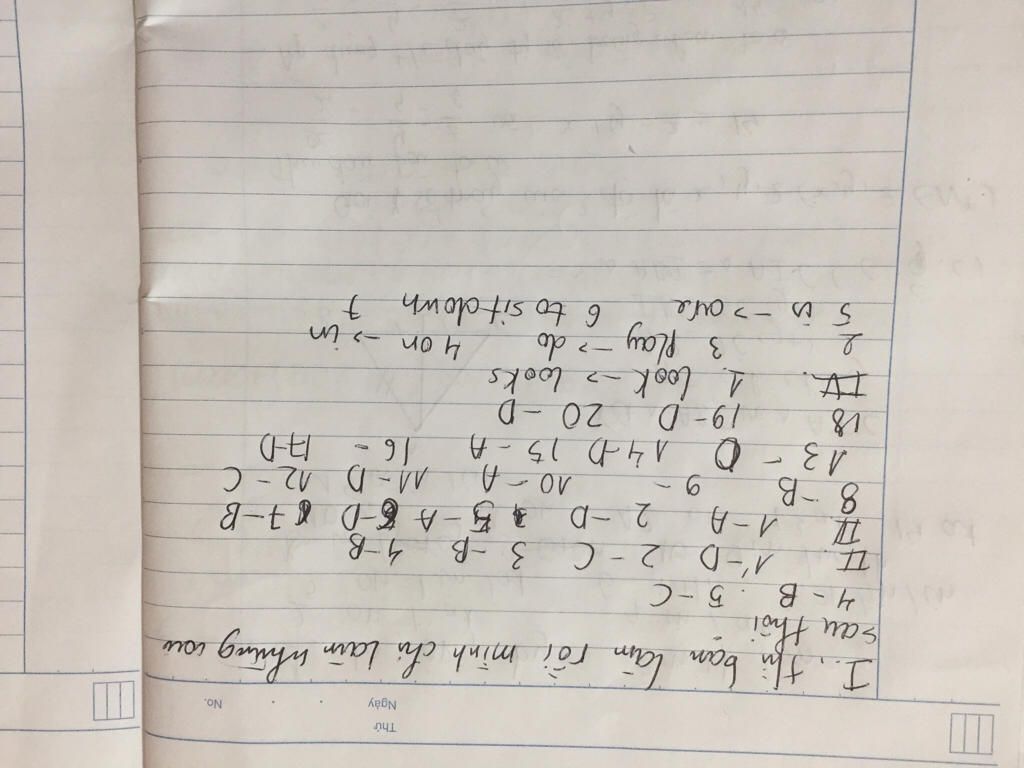 Thứ
Ngày
No.
I., thì bạn làm rồi mình chỉ làm những câu
sau thôi
4 - B 5 - C
II 1 - D 2 - C 3 - B 4 - B
III 1 - A 2 - D 5 - A 6 - D 7 - B
8 - B 9 - 10 - A 11 - D 12 - C
13 - D 14 - D 15 - A 16 - 17 - D
18 19 - D 20 - D
IV. 1. look -> looks
2 3 play -> do 4 on -> in
5 is -> are 6 to sit down 7